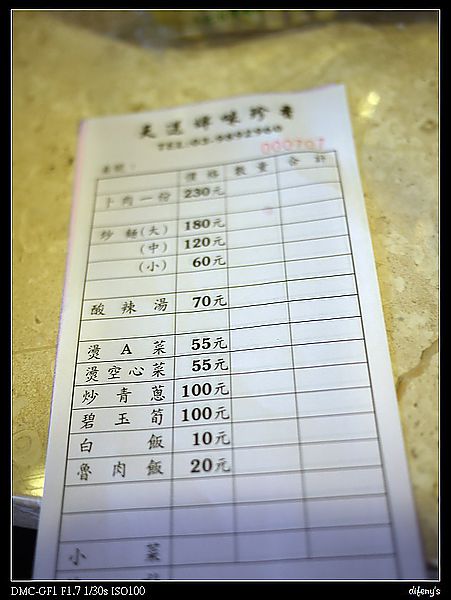 天送牌味珍香
TEL:03-9892960
000707
桌號：
價格 數量 合計
卜肉一份 230元
炒麵(大) 180元
(中) 120元
(小) 60元
酸辣湯 70元
燙A菜 55元
燙空心菜 55元
炒青蔥 100元
碧玉筍 100元
白飯 10元
魯肉飯 20元
小菜
DMC-GF1 F1.7 1/30s ISO100
difeny's